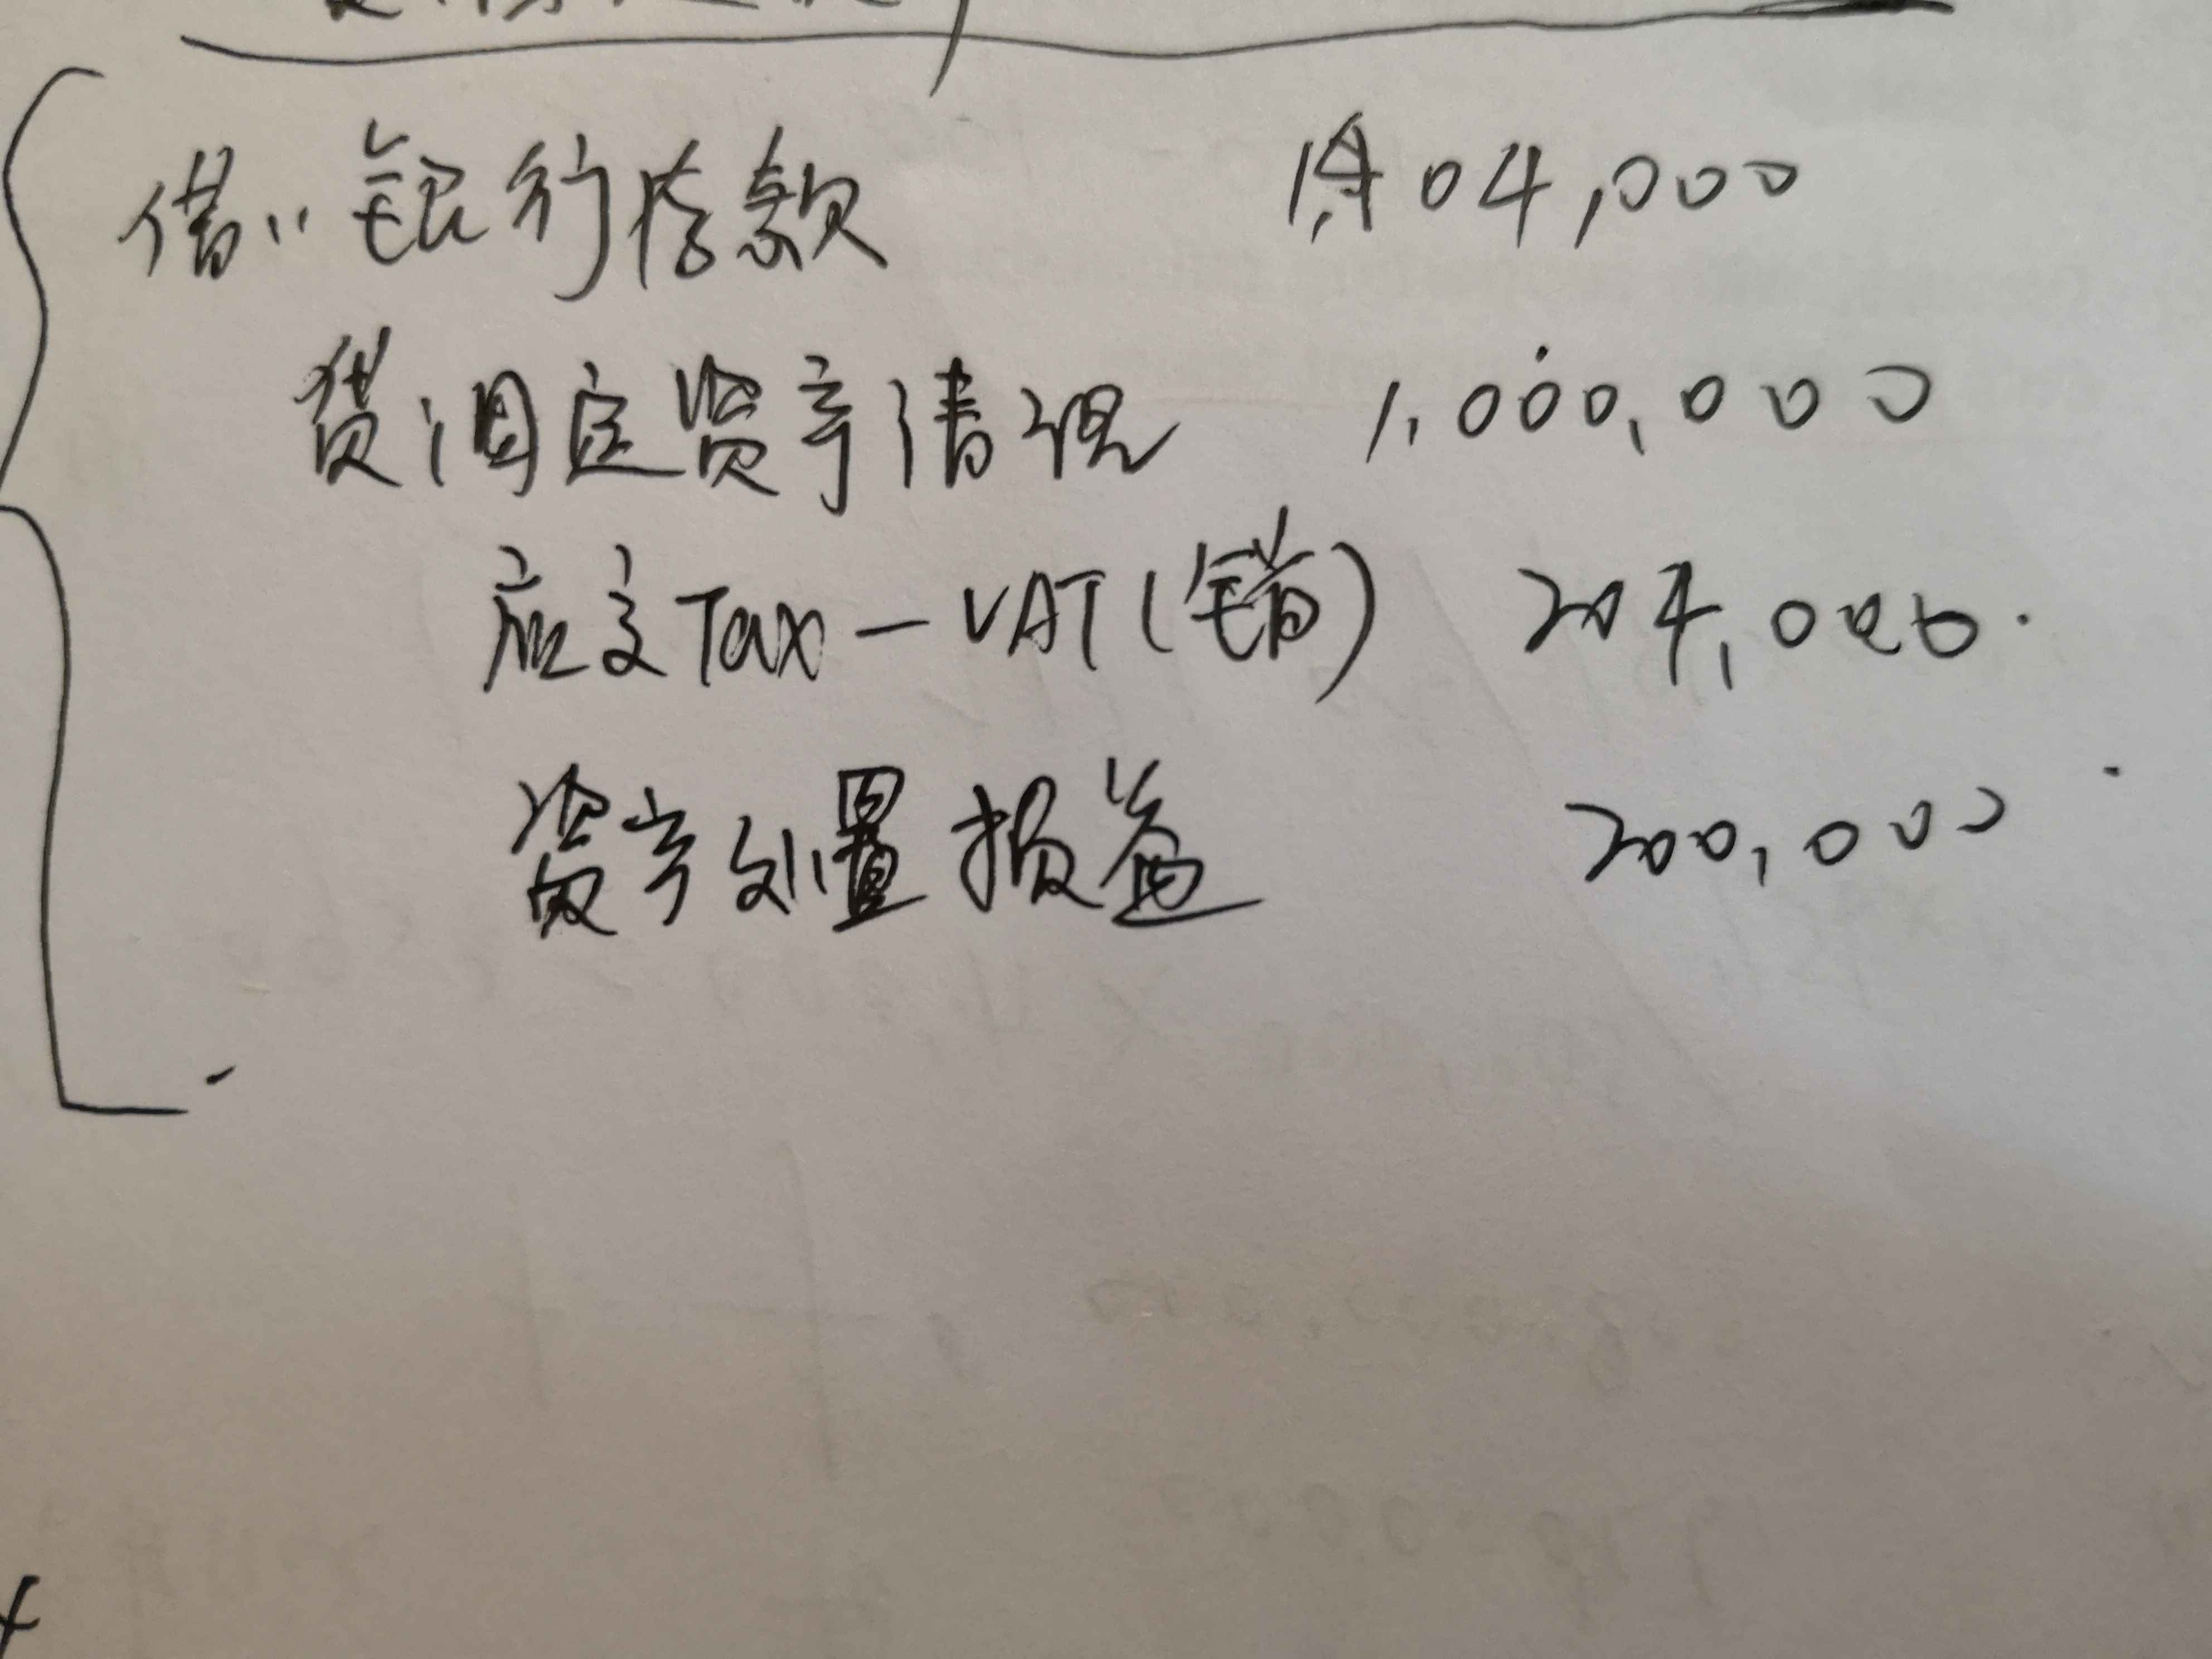 借:银行存款 1,404,000
贷:固定资产清理 1,000,000
应交Tax-VAT(销) 204,000.
资产处置损益 200,000